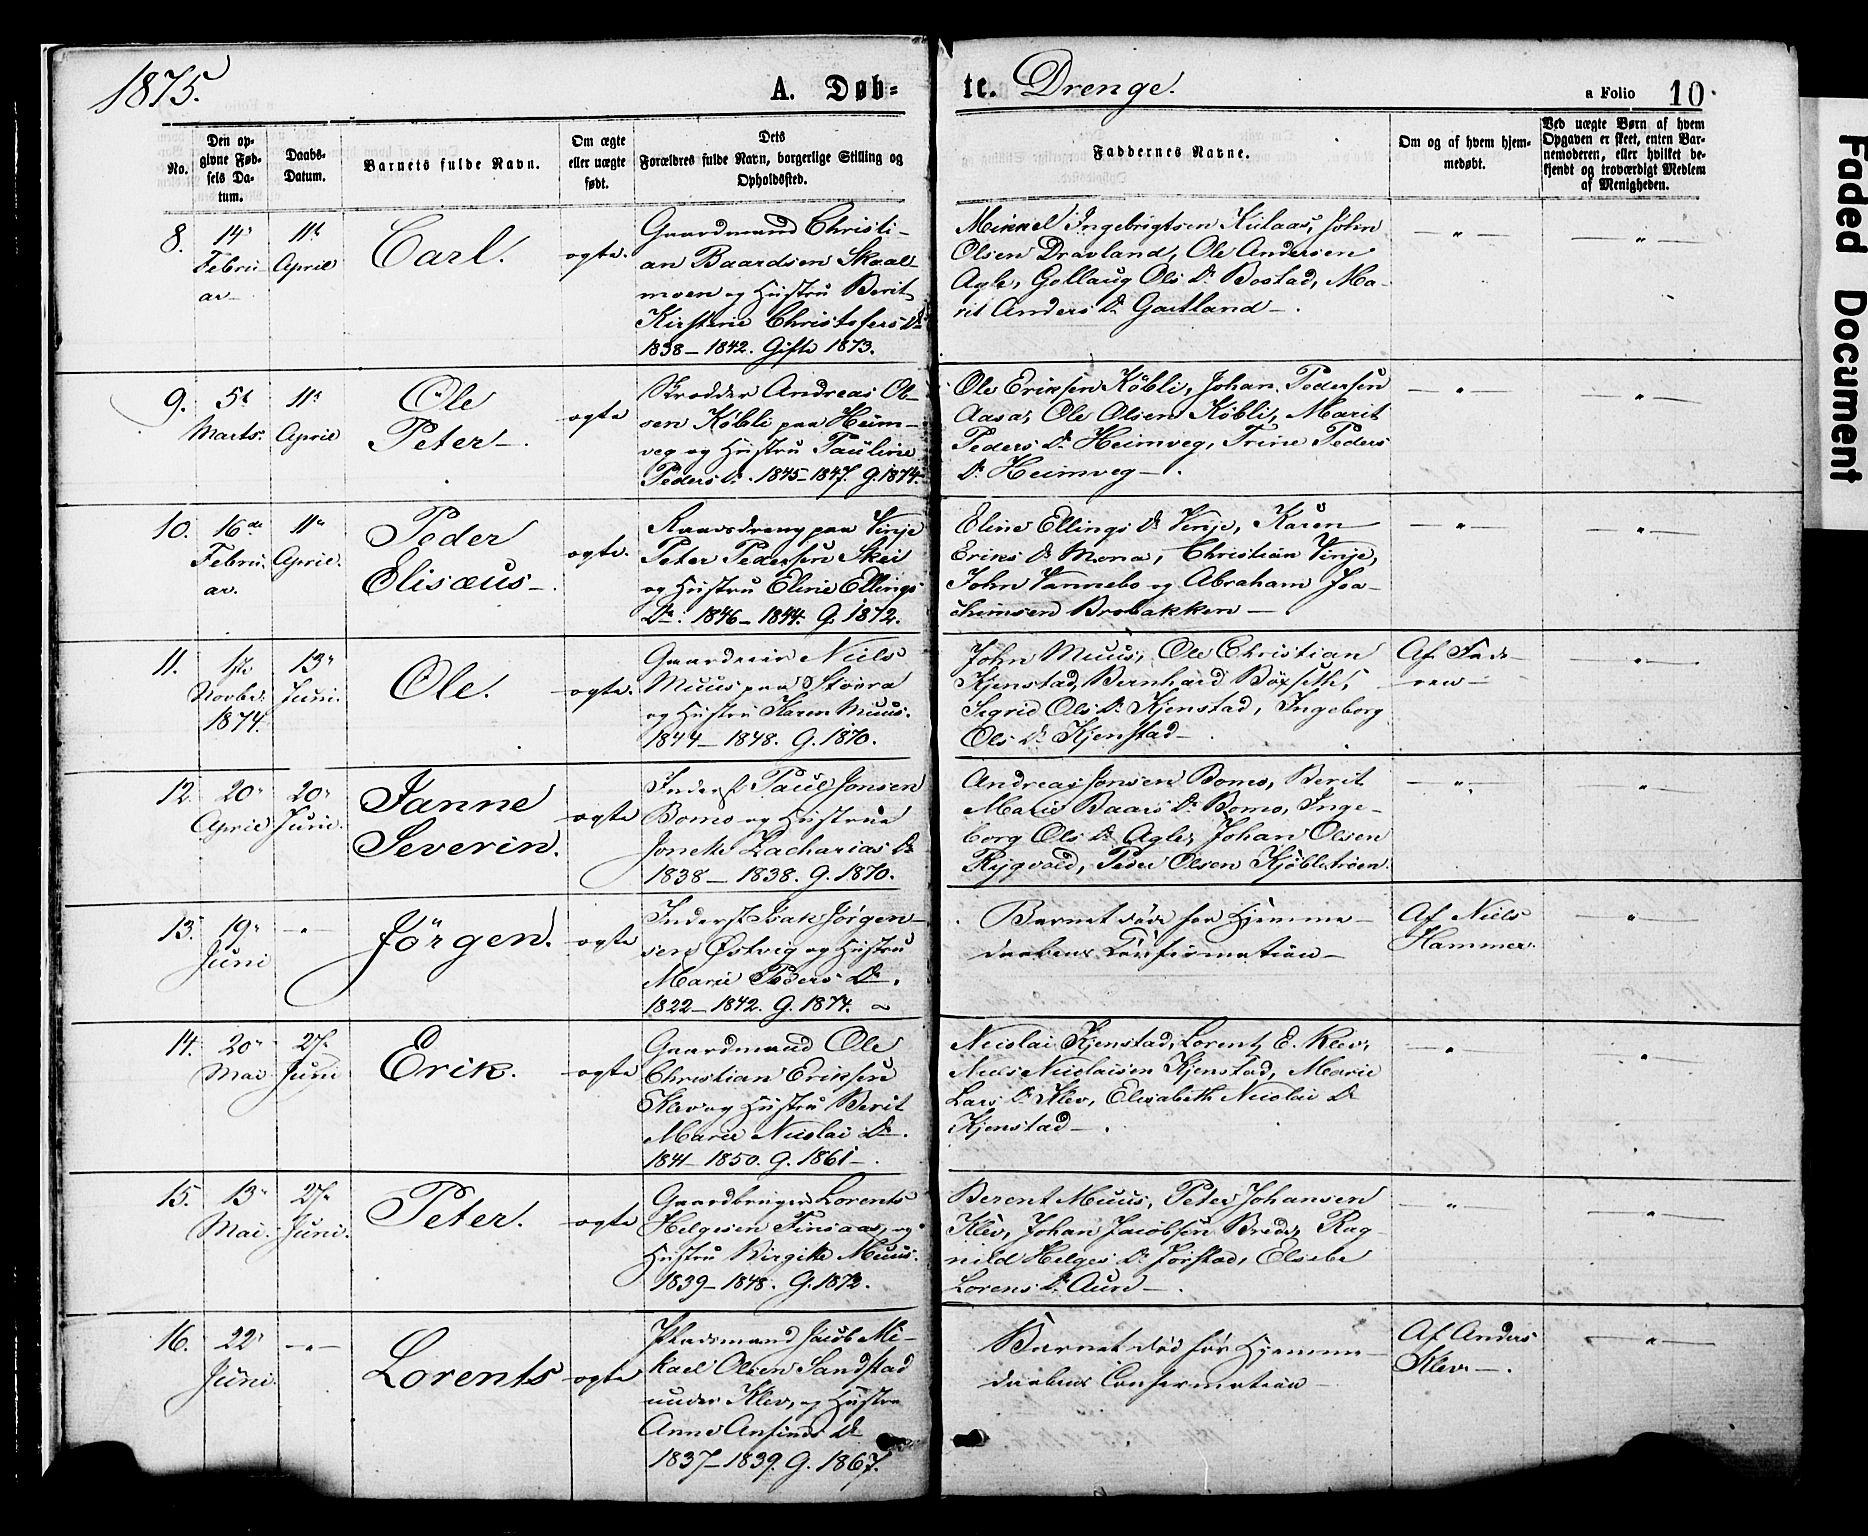 1875.
A. Døb=
te. Drenge.
a Folio 10.
No.
Den op-
givne Fød-
sels Da-
tum.
Daabs-
Datum.
Barnets fulde Navn.
Om ægte
eller uægte
født.
Dets
Forældres fulde Navn, borgerlige Stilling og
Opholdssted.
Faddernes Navne.
Om og af hvem hjem-
medøbt.
Ved uægte Børn af hvem
Opgaven er skeet, enten Bar-
nemoderen, eller hvilket be-
kjendt og troværdigt Medlem
af Menigheden.
8.
14'
Febru
ar
11te
April
Carl.
ægte.
Gaardmand Christi-
an Baardsen Skaal-
moen og Hustru Berit
Kirstine Christofers Dr
1838 - 1842. Gifte 1873.
Mikkel Ingebrigtsen Kulaas, John
Olsen Dravland, Ole Andersen
Agle, Gollaug Ols Dr Bostad, Ma-
rit Anders Dr Gartland - .
- " -
- " -
9.
5te
Marts.
11te
April
Ole
Peter -
ægte
Skrædder Andreas Ol-
sen Købli paa Heim-
veg og Hustru Pauline
Peders Dr. 1845-1847. G. 1874.
Ole Eriksen Købli, Johan Pedersen
Aasa, Ole Olsen Købli, Marit
Peders Dr Heimveg, Trine Peders
Dr Heimveg - .
- " -
- " -
10.
16de
Febru.
ar.
11te
April.
Peder
Elisæus -
ægte.
Raavsdreng paa Vinje
Peter Pedersen Skei
og Hustru Eline Ellings
Dr: 1846 - 1844. G. 1872.
Eline Ellings Dr Vinje, Karen
Eriks Dr Mona, Christian Vinje,
John Vannebo og Abraham Joa-
chimsen Brobakken -
- " -
- " -
11.
1ste
Novbr.
1874.
13'
Juni.
Ole.
ægte.
Gaardeier Niels
Muus paa Stoora
og Hustru Karen Muus.
1844 - 1848. G. 1870.
John Muus, Ole Christian
Kjenstad, Bernhard Bøxseth,
Sigrid Ols Dr Kjenstad, Ingeborg
Ols Dr Kjenstad -
Af Fad-
ren -
- " -
12.
20'
April
20'
Juni.
Janne
Severin.
ægte
Inderst Paul Jonsen
Bomo og Hustrue
Jonette Zacharias Dr
1838 - 1838. G. 1870.
Andreas Jonsen Bomo, Berit
Marie Baars Dr Bomo, Inge-
borg Ols Dr Agle, Johan Olsen
Rygvold, Peder Olsen Kjøblitrøen.
- " -
- " -
13.
19'
Juni
- " -
Jörgen.
ægte
Inderst Isak Jörgen-
sen Østvig og Hustru
Marie Peders Dr.
1822 - 1842. G. 1874.
Barnet døde før Hjemme-
daabens Confirmation -
Af Niels
Hammer.
- " -
14.
20'
Mai
27.
Juni
Erik.
ægte
Gaardmand Ole
Christian Eriksen
Klev og Hustru Berit
Marie Nicolai Dr.
1841 - 1850. G. 1861 - .
Nicolai Kjenstad, Lorents E. Klev,
Niels Nicolaisen Kjenstad, Marie
Lars Dr Klev, Elisabeth Nicolai Dr
Kjenstad - .
- " -
- " -
15.
13'
Mai.
27'
Juni.
Peter.
ægte
Gaardbruger Lorents
Helgesen Finsaas, og
Hustru Birgitte Muus.
1839 - 1848. G. 1872.
Berent Muus, Peter Johansen
Klev, Johan Jacobsen Brede, Rag-
nild Helges Dr Jørstad, Elsebe
Lorens Dr Aune - .
- " -
- " -
16.
22'
Juni.
- " -
Lorents
ægte
Pladsmand Jacob Mi-
kael Olsen Sandstad
under Klev, og Hustru
Anne Ansinds Dr
1837 - 1839. G. 1867.
Barnet død før Hjemme-
daabens Confirmation -
Af Anders
Klev - .
- " -
Faded Document